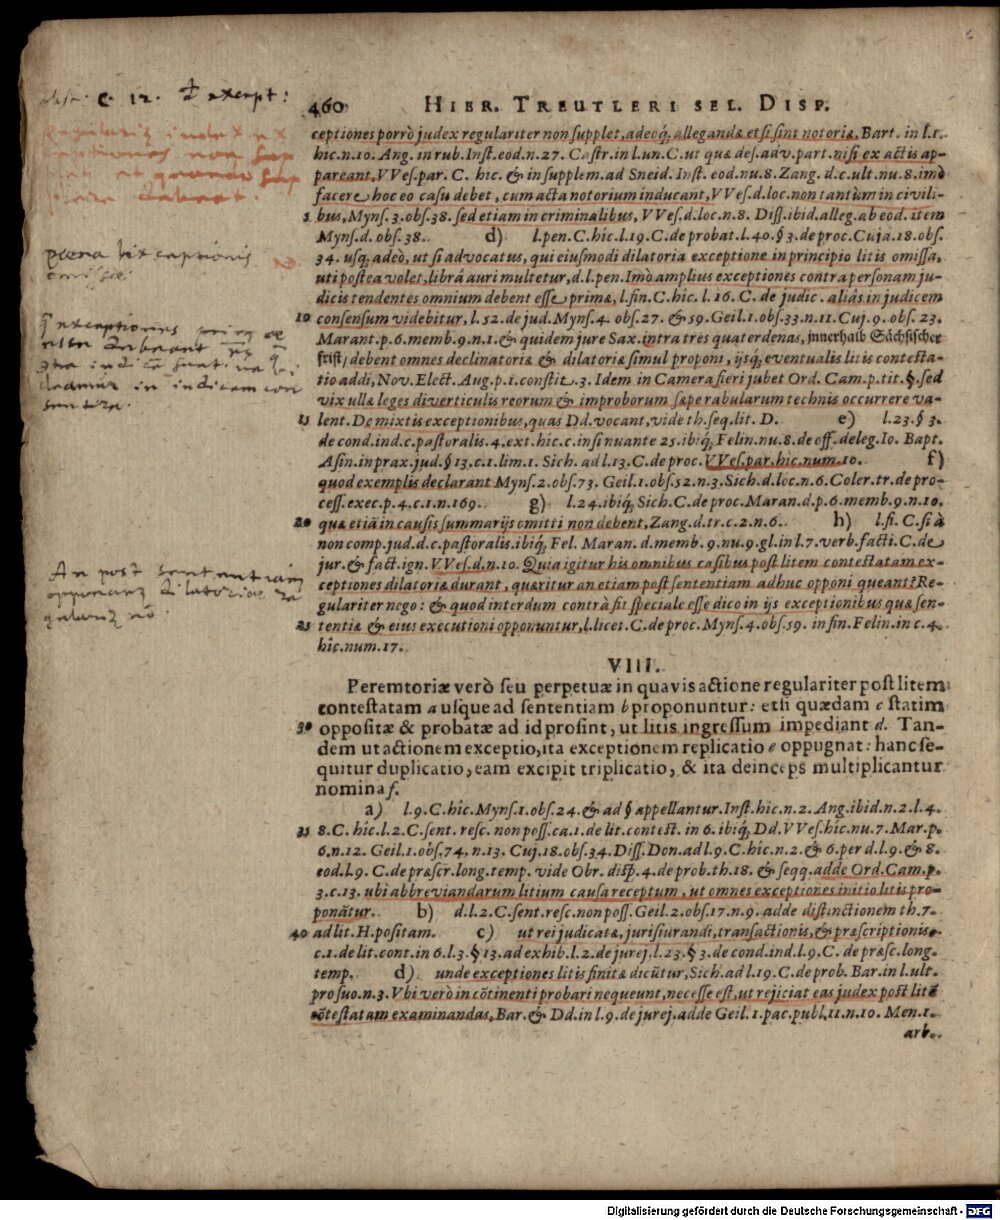 c. 12.
460 HIER. TREUTLERI SEL. DISP.
ceptiones porrò judex regulariter non supplet, adeoq́; allegandæ etsi sint notoriæ, Bart. in l.1.
hîc.n.10. Ang. in rub. Inst. eod.n.27. Castr. in l. un. C. ut quæ des. adv. part. nisi ex actis ap-
pareant, VVes. par. C. hic. & in supplem. ad Sneid. Inst. eod. nu. 8. Zang. d. c. ult. nu. 8. imò
facere hoc eo casu debet, cum acta notorium inducant, VVes. d. loc. non tantùm in civili-
5 bus, Myns. 3. obs. 38. sed etiam in criminalibus, VVes. d. loc. n. 8. Diss. ibid. alleg. ab eod. item
Myns. d. obs. 38. d) l. pen. C. hic. l. 19. C. de probat. l. 40. § 3. de proc. Cuja. 18. obs.
34. usq; adeò, ut si advocatus, qui eiusmodi dilatoria exceptione in principio litis omissa,
uti postea volet, librâ auri multetur, d. l. pen. Imò amplius exceptiones contra personam ju-
dicis tendentes omnium debent esse primæ, l. fin. C. hic. l. 16. C. de judic. aliàs in judicem
10 consensum videbitur, l. 52. de jud. Myns. 4. obs. 27. & 59. Geil. 1. obs. 33. n. 11. Cuj. 9. obs. 23.
Marant. p. 6. memb. 9. n. 1. & quidem jure Sax. intra tres quaterdenas, innerhalb Sächsischer
frist/ debent omnes declinatoriæ & dilatoriæ simul proponi, ijsq́; eventualis litis contesta-
tio addi, Nov. Elect. Aug. p. 1. constit. 3. Idem in Camera fieri jubet Ord. Cam. p. tit. §. sed
vix ullæ leges diverticulis reorum & improborum sæpe rabularum technis occurrere va-
15 lent. De mixtis exceptionibus, quas Dd. vocant, vide th. seq. lit. D. e) l. 23. § 3.
de cond. ind. c. pastoralis. 4. ext. hic. c. insinuante 25. ibiq́; Felin. nu. 8. de off. deleg. Io. Bapt.
Asin. in prax. jud. § 13. c. 1. lim. 1. Sich. ad l. 13. C. de proc. VVes. par. hic. num. 10. f)
quod exemplis declarant Myns. 2. obs. 73. Geil. 1. obs. 52. n. 3. Sich. d. loc. n. 6. Coler. tr. de pro-
cess. exec. p. 4. c. 1. n. 169. g) l. 24. ibiq́; Sich. C. de proc. Maran. d. p. 6. memb. 9. n. 10.
20 quæ etiã in causis summarijs omitti non debent, Zang. d. tr. c. 2. n. 6. h) l. fi. C. si à
non comp. jud. d. c. pastoralis. ibiq́; Fel. Maran. d. memb. 9. nu. 9. gl. in l. 7. verb. facti. C. de
jur. & fact. ign. VVes. d. n. 10. Quia igitur his omnibus casibus post litem contestatam ex-
ceptiones dilatoriæ durant, quæritur an etiam post sententiam adhuc opponi queant? Re-
gulariter nego: & quod interdum contrà fit speciale esse dico in ijs exceptionibus quæ sen-
25 tentiæ & eius executioni opponuntur, l. licet. C. de proc. Myns. 4. obs. 59. in fin. Felin. in c. 4.
hîc. num. 17.
VIII.
Peremtoriæ verò seu perpetuæ in quavis actione regulariter post litem
contestatam a usque ad sententiam b proponuntur: etsi quædam c statim
30 oppositæ & probatæ ad id prosint, ut litis ingressum impediant d. Tan-
dem ut actionem exceptio, ita exceptionem replicatio e oppugnat: hanc se-
quitur duplicatio, eam excipit triplicatio, & ita deinceps multiplicantur
nomina f.
a) l. 9. C. hîc. Myns. 1. obs. 24. & ad § appellantur. Inst. hic. n. 2. Ang. ibid. n. 2. l. 4.
35 8. C. hic. l. 2. C. sent. resc. non poss. ca. 1. de lit. contest. in 6. ibiq́; Dd. VVes. hic. nu. 7. Mar. p.
6. n. 12. Geil. 1. obs. 74. n. 13. Cuj. 18. obs. 34. Diss. Don. ad l. 9. C. hic. n. 2. & 6. per d. l. 9. & 8.
eod. l. 9. C. de præscr. long. temp. vide Obr. disp. 4. de prob. th. 18. & seqq. adde Ord. Cam. p.
3. c. 13. ubi abbreviandarum litium causa receptum, ut omnes exceptiones initio litis pro-
ponãtur. b) d. l. 2. C. sent. resc. non poss. Geil. 2. obs. 17. n. 9. adde distinctionem th. 7.
40 ad lit. H. positam. c) ut rei judicatæ, jurisiurandi, transactionis, & præscriptionis.
c. 1. de lit. cont. in 6. l. 3. § 13. ad exhib. l. 2. de jurej. l. 23. § 3. de cond. ind. l. 9. C. de præsc. long.
temp. d) unde exceptiones litis finitæ dicũtur, Sich. ad l. 19. C. de prob. Bar. in l. ult.
pro suo. n. 3. Vbi verò in cõtinenti probari nequeunt, necesse est, ut rejiciat eas judex post litẽ
cõtestatam examinandas, Bar. & Dd. in l. 9. de jurej. adde Geil. 1. pac. publ. 11. n. 10. Men. 1.
arb.
pœna exceptionis
omissæ.
An post sententiam
Digitalisierung gefördert durch die Deutsche Forschungsgemeinschaft - DFG